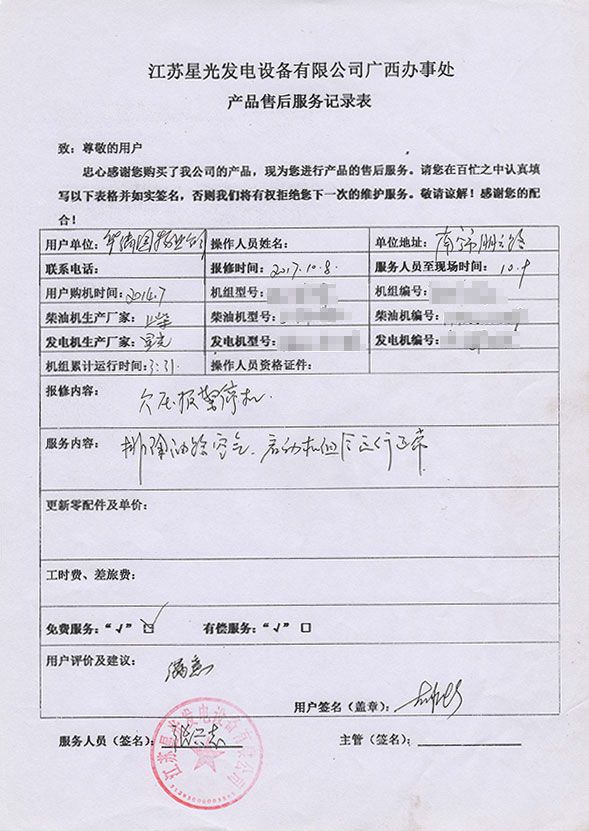 江苏星光发电设备有限公司广西办事处
产品售后服务记录表
致：尊敬的用户
忠心感谢您购买了我公司的产品，现为您进行产品的售后服务。请您在百忙之中认真填
写以下表格并如实签名，否则我们将有权拒绝您下一次的维护服务。敬请谅解！感谢您的配
合！
用户单位： 操作人员姓名： 单位地址：
联系电话： 报修时间：2017.10.8. 服务人员至现场时间：10.9
用户购机时间：2014.7 机组型号： 机组编号：
柴油机生产厂家：上柴 柴油机型号： 柴油机编号：
发电机生产厂家：星光 发电机型号： 发电机编号：
机组累计运行时间：3:31. 操作人员资格证件：
报修内容：
欠压报警停机.
服务内容：
排除油路空气.启动机组 运行正常
更新零配件及单价：
工时费、差旅费：
免费服务：“√”☑ 有偿服务：“√”□
用户评价及建议：
满意
用户签名（盖章）：
服务人员（签名）： 主管（签名）：
江苏星光发电设备有限公司